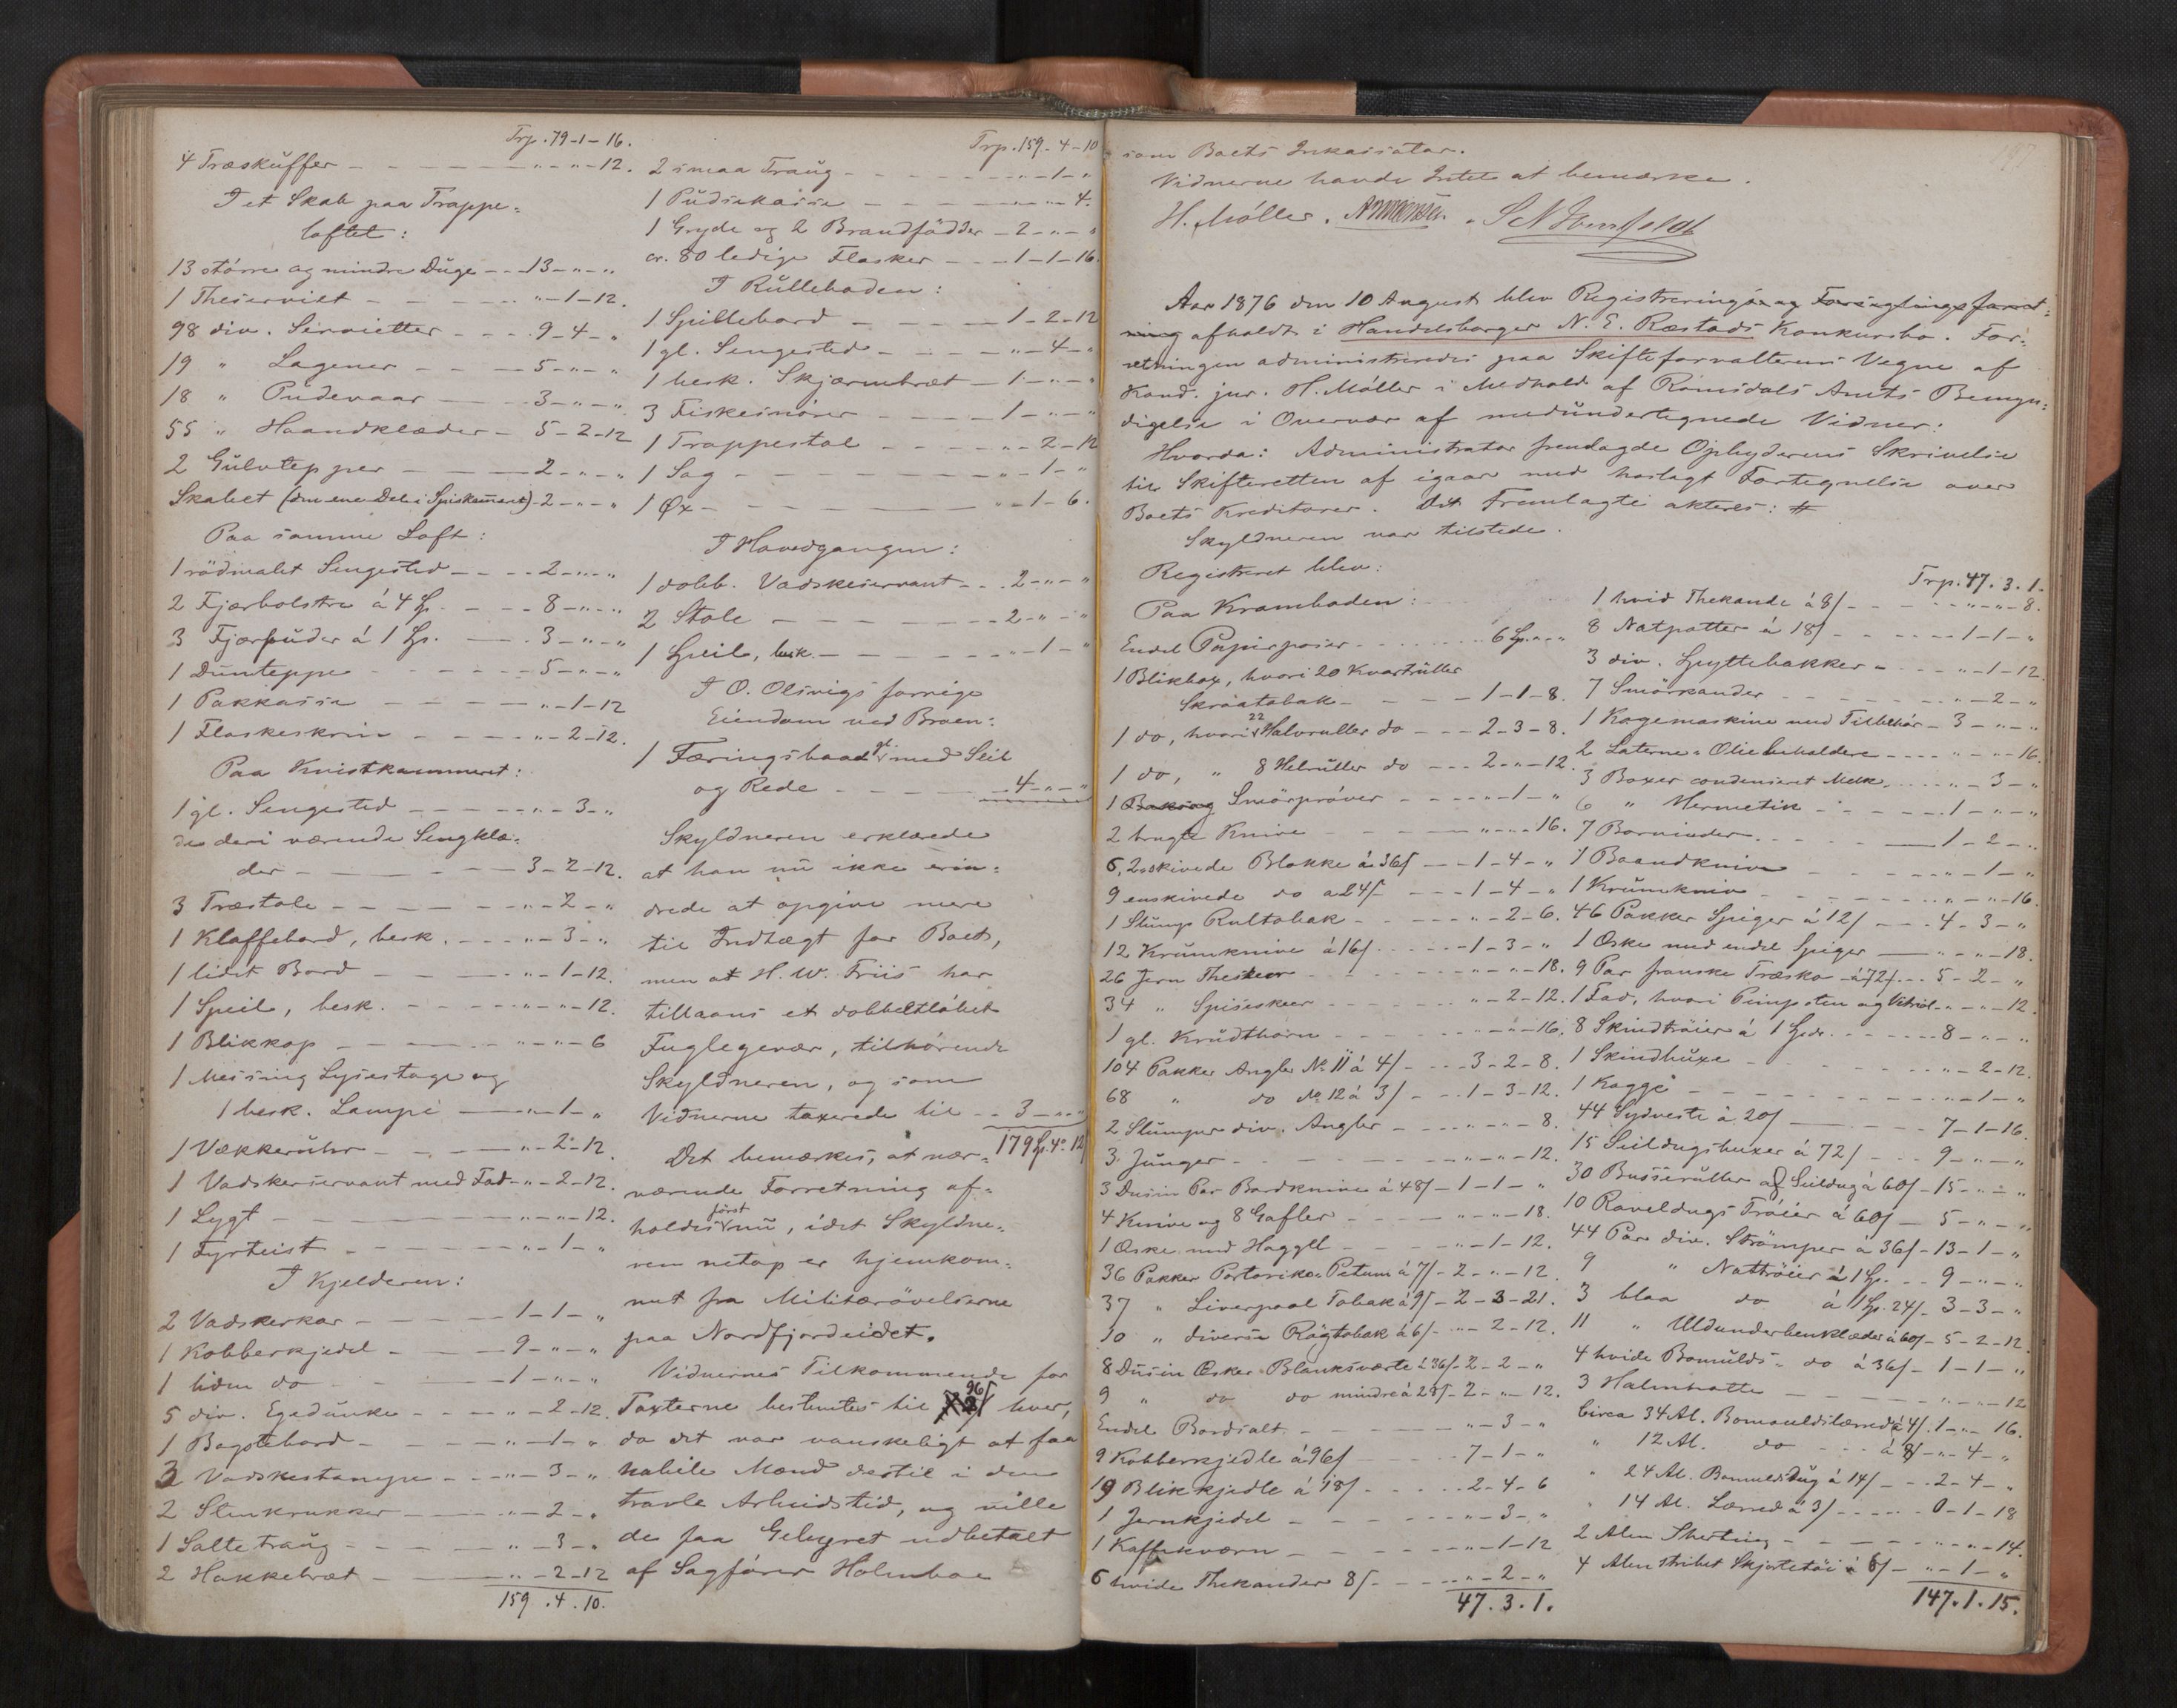 Trp. 79-1-16.
4 Træskuffer - - - " - " - 12.
I et Skab paa Trappe-
loftet:
13 större og mindre Duge - - 13 - " - "
1 Theserviet - - - " - 1 - 12.
98 div. Servietter - - - 9 - 4 - "
19 " Lagener - - - 5 - " - "
18 " Pudevaar - - - 3 - " - "
55 " Haandklæder - 5 - 2 - 12
2 Gulvtepper - - - 2 - " - "
Skabet (den ene Del i Spiskamret) - 2 - " - "
Paa samme Loft:
1 rödmalet Sengested - - - 2 - " - "
2 Fjærbolstre á 4 Sp. - - - 8 - " - "
3 Fjærpuder á 1 Sp. - - - 3 - " - "
1 Dunteppe - - - 5 - " - "
1 Pakkasse - - - " - 1 - 12
1 Flaskeskrin - - - " - 2 - 12.
Paa Kvistkammeret:
1 gl. Sengested - - - " - 3 - "
de deri værende Sengklæ-
der - - - 3 - 2 - 12.
3 Træstole - - - " - 2 - "
1 Klaffebord, besk. - - - " - 3 - "
1 lidet Bord - - - " - 1 - 12.
1 Speil, besk. - - - " - " - 12.
1 Blikkop - - - " - " - 6
1 Messing Lysestage og
1 besk. Lampe - - - " - 1 - "
1 Vækkeruhr - - - " - 2 - 12.
1 Vadskerservant med Fad - " - 2 - 12.
1 Lygt - - - " - " - 12.
1 Fyrteist - - - " - 1 - "
I Kjelderen:
2 Vadskerkar - - - 1 - 1 - "
1 Kobberkjedel - - - 9 - " - "
1 liden do - - - 1 - " - "
5 div. Egedunke - - - " - 2 - 12.
1 Bagstebord - - - " - 1 - "
3 Vadskestampe - - - " - 3 - "
2 Stenkrukker - - - " - 2 - "
1 Saltetraug - - - " - 3 - "
2 Hakkebræt - - - " - 2 - 12
159 . 4 . 10.
Trp. 159 - 4 - 10
2 smaa Traug - - - " - 1 - "
1 Pudsekasse - - - " - " - 4.
1 Gryde og 2 Brandfödder - 2 - " - "
cr. 80 ledige Flasker - - - 1 - 1 - 16.
I Rulleboden:
1 Spillebord - - - 1 - 2 - 12
1 gl. Sengested - - - " - 4 - "
1 besk. Skjærmbræt - 1 - " - "
3 Fiskesnörer - - - 1 - " - "
1 Trappestol - - - " - 2 - 12
1 Sag - - - " - 1 - "
1 Øx - - - " - 1 - 6.
I Hovedgangen:
1 dobb. Vadskeservant - - - 2 - " - "
2 Stole - - - 2 - " - "
1 Speil, besk. - - - " - 1 - "
I O. Olsvigs forrige
Eiendom ved Broen:
1 Færingsbaad gl. med Seil
og Rede - - - 4 - " - "
Skyldneren erklærede
at han nu ikke erin-
drede at opgive mere
til Indtægt for Boet,
men at H. W. Friis har
tillaans et dobbeltløbet
Fuglegevær, tilhörende
Skyldneren, og som
Vidnerne taxerede til - - 3 - " - "
179 Sp. 4 - 12
Det bemærkes, at nær-
værende Forretning af-
holdes först nu, idet Skyldne-
ren netop er hjemkom-
met fra Militærövelserne
paa Nordfjordeidet.
Vidnernes Tilkommende for
Taxterne bestemtes til 96 ſ hver,
da det var vanskeligt at faa
habile Mænd dertil i den
travle Arbeidstid, og ville
de faa Gebyret udbetalt
af Sagförer Holmboe
som Boets Inkassator.
Vidnerne havde Intet at bemærke.
H. Möller.
Aar 1876 den 10 August blev Registrerings og Forseglingsforret-
ning afholdt i Handelsborger N. E. Ræstads Konkursbo. For-
retningen administreredes paa Skifteforvalterens Vegne af
Kand. jur. H. Möller i Medhold af Romsdals Amts Bemyn-
digelse i Overvær af medundertegnede Vidner:
Hvorda: Administrator fremlagde Opbyderens Skrivelse
til Skifteretten af igaar med vedlagt Fortegnelse over
Boets Kreditorer. Det Fremlagte akteres: #
Skyldneren var tilstede.
Registreret blev:
Paa Kramboden:
Endel Papirposer - - - 6 Sp. " - "
1 Blikbox, hvori 20 Kvartruller
Skraatobak - - - 1 - 1 - 8.
1 do, hvori 22 Halvruller do - - - 2 - 3 - 8.
1 do, " 8 Helruller do - - - 2 - " - 12.
1 Smörpröver - - - " - 1 - "
2 brugte Knive - - - " - " - 16.
6, 2-skivede Blokke á 36 ſ - - 1 - 4 - "
9 enskivede do a 24 ſ - - - 1 - 4 - "
1 Stump Rultobak - - - " - 2 - 6.
12 Krumknive á 16 ſ - - - 1 - 3 - "
26 Jern Theskeer - - - " - " - 18.
34 " Spiseskeer - - - " - 2 - 12.
1 gl. Krudthorn - - - " - " - 16.
104 Pakker Angler No 11 á 4 ſ - - - 3 - 2 - 8.
68 " do No 12 á 3 ſ - - 1 - 3 - 12.
2 Stumper div. Angler - - - " - " - 8.
3 Junger - - - " - " - 12.
3 Dusin Par Bordknive á 48 ſ - 1 - 1 - "
4 Knive og 8 Gafler - - - " - " - 18.
1 Æske med Haggel - - - " - 1 - 12.
36 Pakker Portoriko-Petum á 7 ſ - 2 - " - 12.
37 " Liverpool Tobak á 9 ſ - 2 - 3 - 21.
10 " diverse Rögtobak á 6 ſ - " - 2 - 12.
8 Dusin Æsker Blanksværte á 36 ſ - 2 - 2 - "
9 " do do mindre á 28 ſ - 2 - " - 12.
Endel Bordsalt - - - " - 3 - "
9 Kobberkjedle á 96 ſ - - - 7 - 1 - "
19 Blikkjedle á 18 ſ - - - 2 - 4 - 6
1 Jernkjedel - - - " - 3 - "
1 Kaffekværn - - - " - 1 - 12
6 hvide Thekander 8 ſ - - - " - 2 - "
47 . 3 . 1.
Trp. 47. 3. 1.
1 hvid Thekande á 8 ſ - - - " - " - 8.
8 Natpotter á 18 ſ - - - 1 - 1 - "
3 div. Spyttebakker - - - " - 1 - 12.
7 Smörkander - - - " - 2 - "
1 Kogemaskine med Tilbehör - 3 - " - "
2 Laterne-Oliebeholdere - - - " - " - 16.
3 Boxer condenseret Melk - - - " - 3 - "
6 " Hermetik - - - 1 - " - "
7 Barvinder - - - 1 - 2 - "
1 Baandkniv - - - " - 1 - "
1 Krumkniv - - - " - " - 16.
46 Pakker Spiger á 12 ſ - - - 4 - 3 - "
1 Æske med endel Spiger - - - " - " - 18.
9 Par franske Træsko - á 72 ſ - - 5 - 2 - "
1 Fad, hvori Pimpsten og Vitriol - " - " - 12.
8 Skindtröier á 1 Spd. - - - 8 - " - "
1 Skindbuxe - - - " - 2 - 12.
1 Kagge - - - " - 1 - "
44 Sydveste á 20 ſ - - - 7 - 1 - 16.
15 Seildugsbuxer á 72 ſ - - - 9 - " - "
30 Busseruller af Seildug á 60 ſ - 15 - " - "
10 Raveldugs Tröier á 60 ſ - 5 - " - "
44 Par div. Strömper á 36 ſ - 13 - 1 - "
9 " Nattröier á 1 Sp. - - 9 - " - "
3 blaa do á 1 Sp. 24 ſ - 3 - 3 - "
11 " Uldunderbenklæder á 60 ſ - 5 - 2 - 12.
4 hvide Bomulds- do á 36 ſ - 1 - 1 - "
3 Halmhatte - - - " - " - 12
Circa 34 Al. Bomuldslærred á 4 ſ. 1 - " - 16.
" 12 Al. do - - - á 8 ſ - " - 4 - "
" 24 Al. Bomuldsdug á 14 ſ - - 2 - 4 - "
" 14 Al. Lærred á 3 ſ - - - 0 - 1 - 18
2 Alen Sherting - - - " - " - 14.
4 Alen stribet Skjortetöi á 6 ſ - " - 1 - "
147. 1. 15.